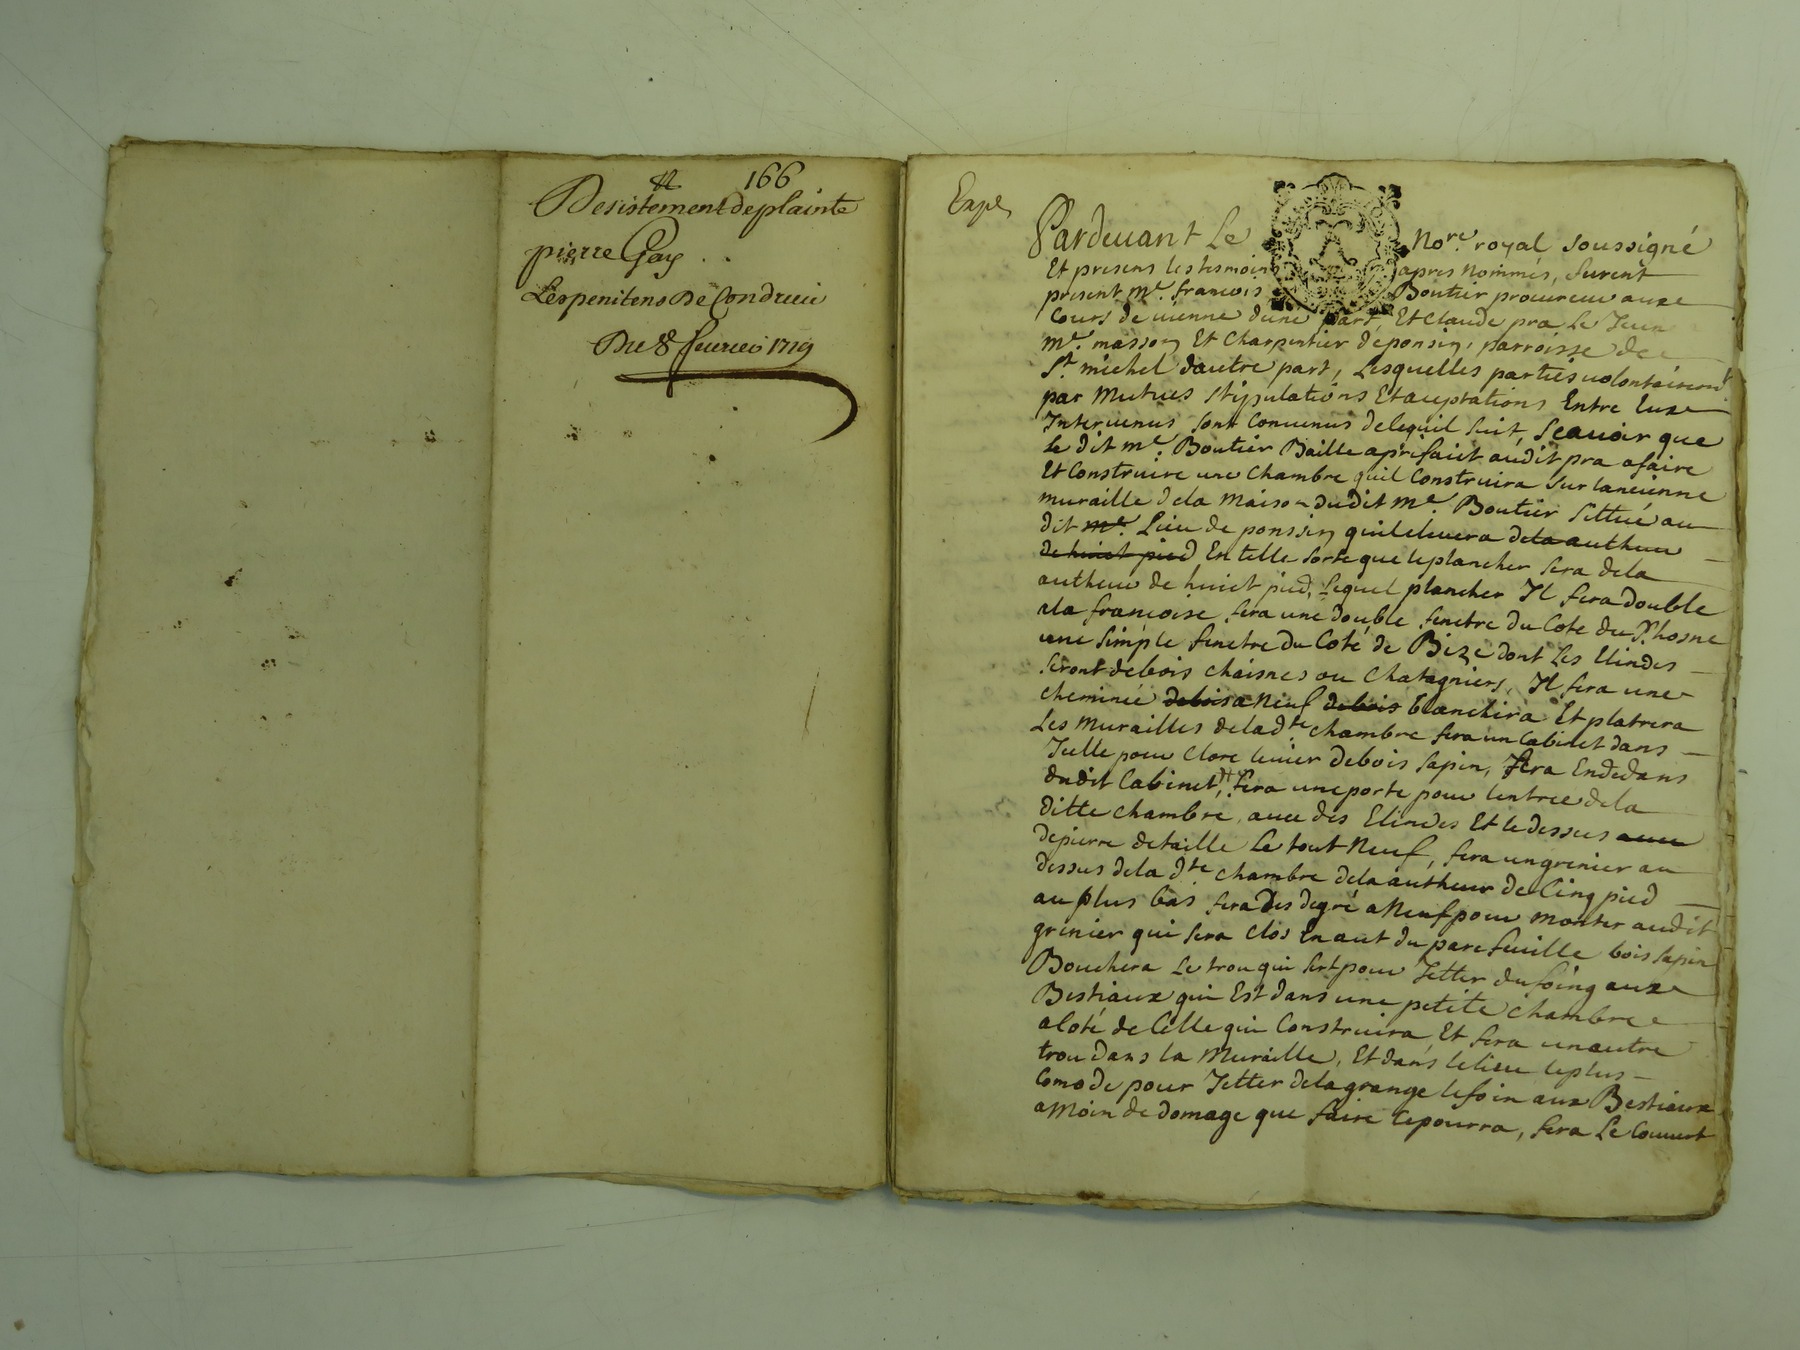 166
Desistement deplainte
pierre Gay
Les penitens De Condrieu
Du 8 feurier 1719
Expé
Pardeuant Le Nore. royal soussigné
Et presens les tesmoins apres nommés, furent
present Me. francois Boutier procureur auxe
Cours de uienne dune part, Et Claude pra Le Jeune
Me. masson Et Charpentier de ponsin, parroisse de
St. michel dautre part, Lesquelles parties uolontairemt
par Mutues stipulations Et acceptations Entre Eux
Interuenus sont Conuenus delequil suit, Scauoir que
le dit me. Boutier Baille aprifaict audit pra afaire
Et Construire une Chambre quil Construira sur lancienne
muraille dela Maison dudit Me. Boutier sittué au
dit me. Lieu de ponsin quil eleuera dela autheur
de huict pied En telle sorte que leplancher sera dela
autheur de huict pied, Lequel plancher Il fera double
ala francoise fera une double fenetre du Cote du Rhosne
une simple fenetre du Coté de Bize dont Les Elindes
seront debois chaisnes ou Chatagniers, Il fera une
cheminée debois aneuf debois blanchira Et platrera
Les murailles delad.te chambre fera un Cabinet dans
Icelle pour Clore leuier debois sapin, fera Endedans
dudit Cabinet, fera une porte pour lentree dela
ditte chambre, auec des Elindes Et ledessus auec
depierre detaille Le tout Neuf, fera un grenier au
dessus dela d.te chambre dela autheur de Cinq pied
au plus bas fera des degré a Neuf pour monter audit
grenier qui sera Clos En aut du parefeuille bois sapin
Bouchera Le trou qui sert pour Jetter du foing aux
Bestiaux qui Est dans une petite chambre
a Coté de Celle qui Construira, Et fera un autre
trou dans la Muraille, Et dans lelieu leplus
Comode pour Jetter delagrange lefoin aux Bestiaux
amoin de domage que faire cepourra, fera Le Couuert